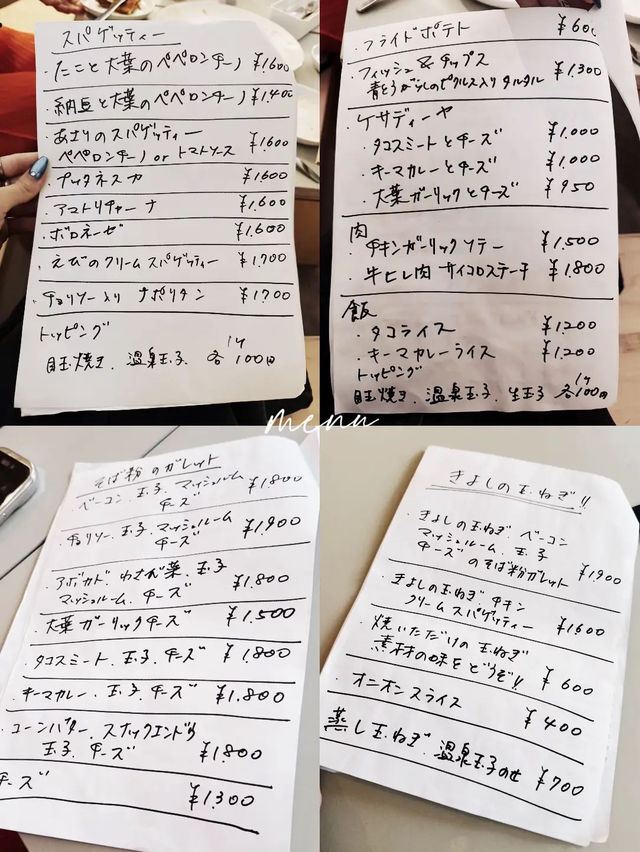 スパゲッティー
・たこと大葉のペペロンチーノ ¥1.600
納豆と大葉のペペロンチーノ ¥1.400
・あさりのスパゲッティー
ペペロンチーノ or トマトソース ¥1600
・プッタネスカ ¥1.600
・アマトリチャーナ ¥1.600
・ボロネーゼ ¥1.600
・えびのクリームスパゲッティー ¥1.700
・チョリソー入りナポリタン ¥1700
トッピング
目玉焼き、温泉玉子 各1ケ100円
・フライドポテト ¥600
・フィッシュ&チップス
青とうがらしのピクルス入りタルタル ¥1.300
・ケサディーヤ
・タコスミートとチーズ ¥1.000
・キーマカレーとチーズ ¥1.000
・大葉ガーリックとチーズ ¥950
肉
・チキンガーリックソテー ¥1.500
・牛ヒレ肉サイコロステーキ ¥1.800
飯
・タコライス ¥1200
・キーマカレーライス ¥1.200
トッピング
目玉焼き、温泉玉子、生玉子 各1ケ100円
menu
そば粉のガレット
・ベーコン、玉子、マッシュルーム
チーズ ¥1800
・チョリソー、玉子、マッシュルーム
チーズ ¥1.900
アボカド、わさび菜、玉子
マッシュルーム、チーズ ¥1.800
・大葉ガーリックチーズ ¥1.500
・タコスミート、玉子、チーズ ¥1.800
・キーマカレー、玉子、チーズ ¥1.800
コーンバター、スナックエンドウ
玉子、チーズ ¥1.800
チーズ ¥1.300
きよしの玉ねぎ!!
・きよしの玉ねぎ、ベーコン
マッシュルーム、玉子
チーズのそば粉ガレット ¥1900
・きよしの玉ねぎチキン
クリームスパゲッティー ¥1600
・焼いただけの玉ねぎ
素材の味をどうぞ!! ¥600
・オニオンスライス ¥400
蒸し玉ねぎ、温泉玉子のせ ¥700